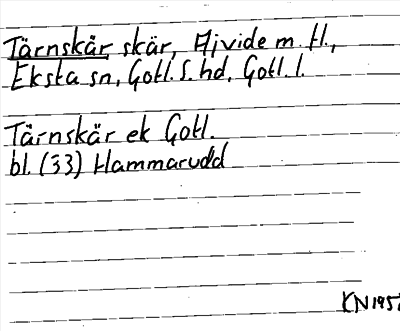 Tärnskär skär, Ajvide m. fl.,
Eksta sn, Gotl. S. hd, Gotl. l.
Tärnskär ek Gotl.
bl. (33) Hammarudd